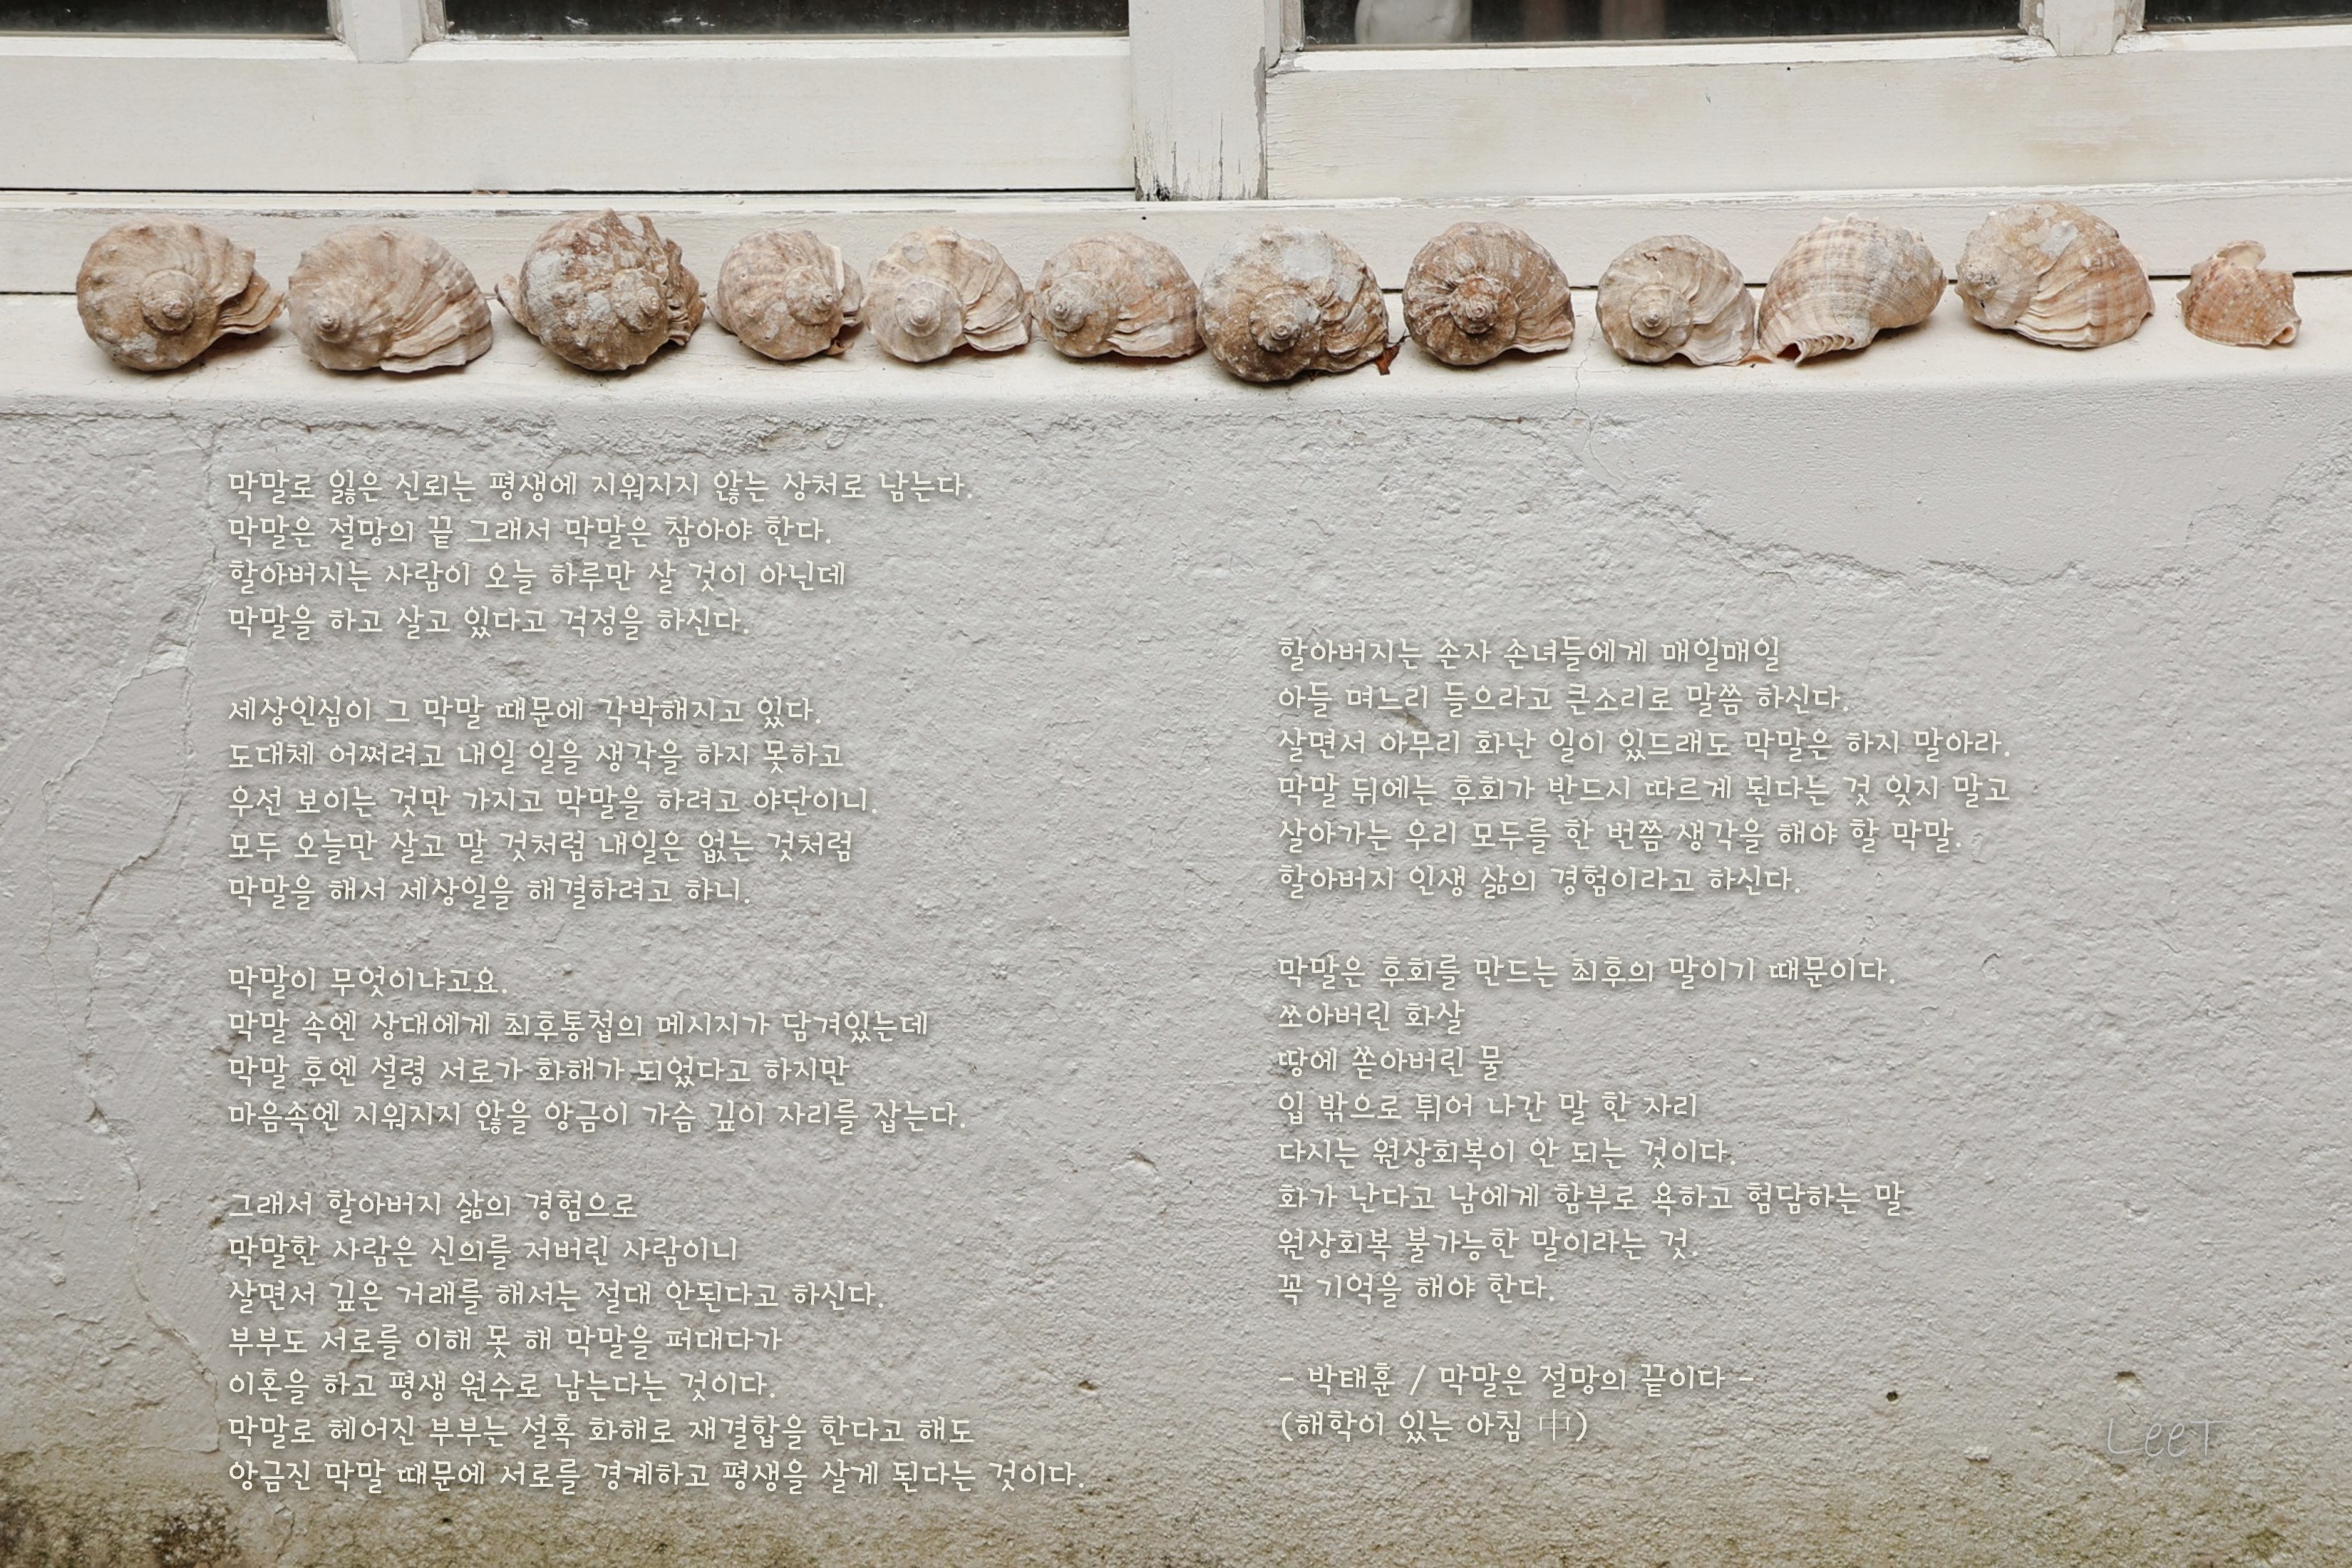 막말로 잃은 신뢰는 평생에 지워지지 않는 상처로 남는다.
막말은 절망의 끝 그래서 막말은 참아야 한다.
할아버지는 사람이 오늘 하루만 살 것이 아닌데
막말을 하고 살고 있다고 걱정을 하신다.
세상인심이 그 막말 때문에 각박해지고 있다.
도대체 어쩌려고 내일 일을 생각을 하지 못하고
우선 보이는 것만 가지고 막말을 하려고 야단이니.
모두 오늘만 살고 말 것처럼 내일은 없는 것처럼
막말을 해서 세상일을 해결하려고 하니.
막말이 무엇이냐고요.
막말 속엔 상대에게 최후통첩의 메시지가 담겨있는데
막말 후엔 설령 서로가 화해가 되었다고 하지만
마음속엔 지워지지 않을 앙금이 가슴 깊이 자리를 잡는다.
그래서 할아버지 삶의 경험으로
막말한 사람은 신의를 저버린 사람이니
살면서 깊은 거래를 해서는 절대 안된다고 하신다.
부부도 서로를 이해 못 해 막말을 퍼대다가
이혼을 하고 평생 원수로 남는다는 것이다.
막말로 헤어진 부부는 설혹 화해로 재결합을 한다고 해도
앙금진 막말 때문에 서로를 경계하고 평생을 살게 된다는 것이다.
할아버지는 손자 손녀들에게 매일매일
아들 며느리 들으라고 큰소리로 말씀 하신다.
살면서 아무리 화난 일이 있드래도 막말은 하지 말아라.
막말 뒤에는 후회가 반드시 따르게 된다는 것 잊지 말고
살아가는 우리 모두를 한 번쯤 생각을 해야 할 막말.
할아버지 인생 삶의 경험이라고 하신다.
막말은 후회를 만드는 최후의 말이기 때문이다.
쏘아버린 화살
땅에 쏟아버린 물
입 밖으로 튀어 나간 말 한 자리
다시는 원상회복이 안 되는 것이다.
화가 난다고 남에게 함부로 욕하고 험담하는 말
원상회복 불가능한 말이라는 것.
꼭 기억을 해야 한다.
- 박태훈 / 막말은 절망의 끝이다 -
(해학이 있는 아침 中)
LeeT